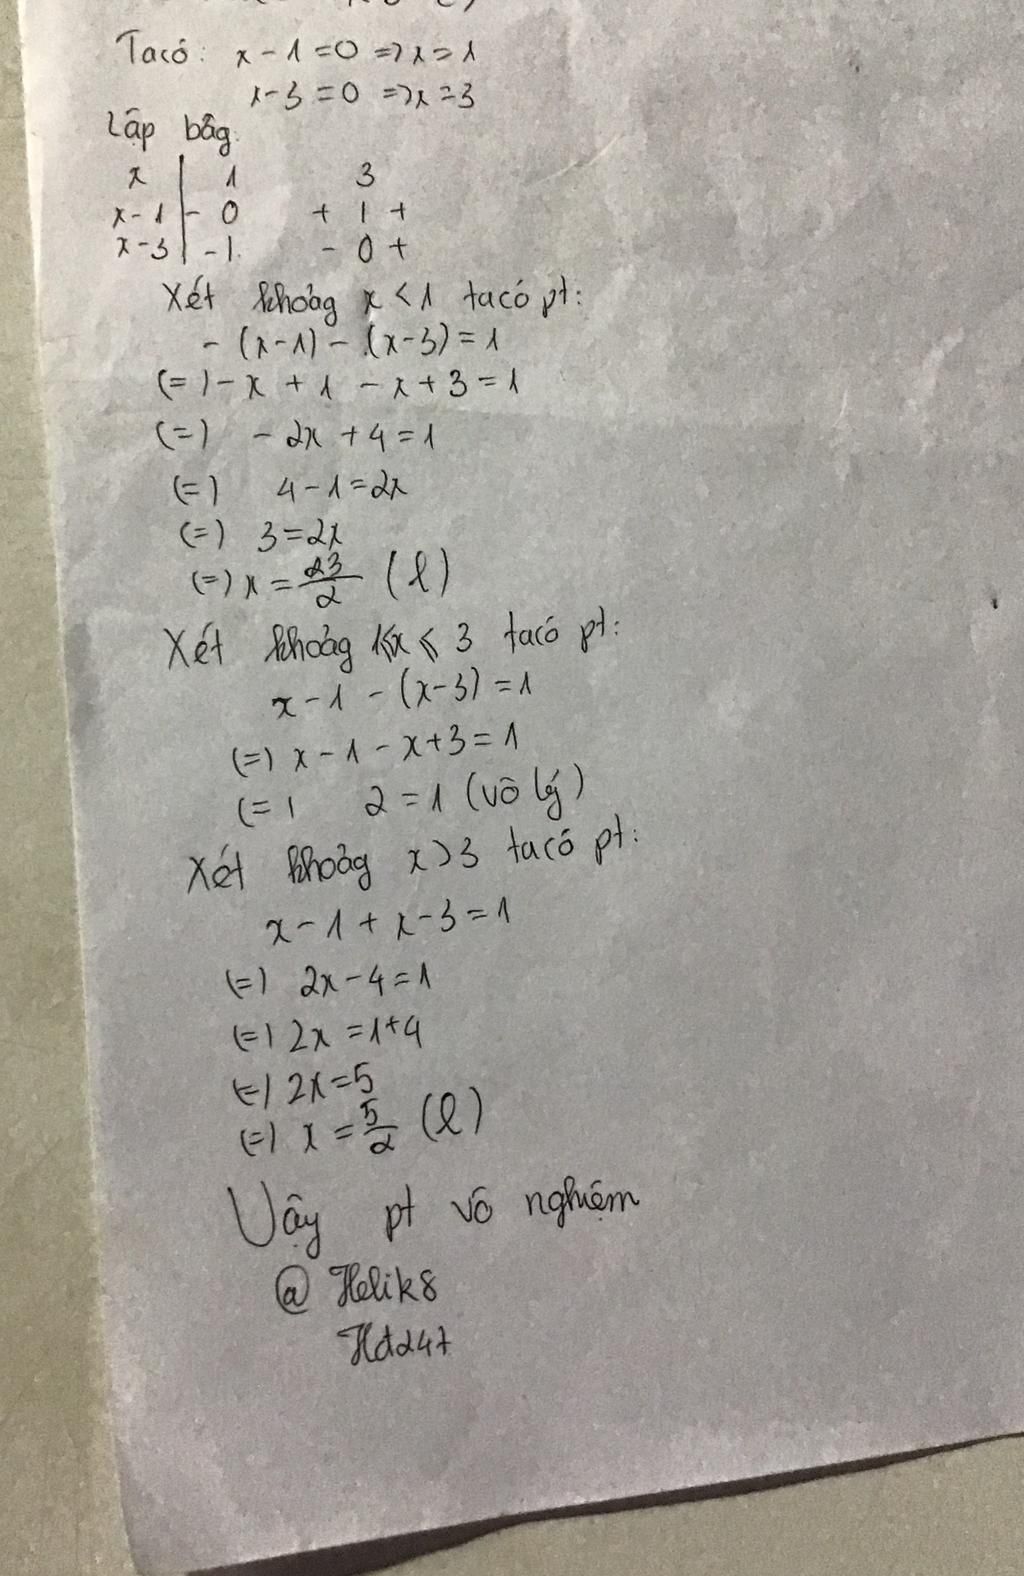 Ta có: x - 1 = 0 => x = 1
x - 3 = 0 => x = 3
Lập bảg.
x | 1 3
x - 1 | - 0 + | +
x - 3 | - | - 0 +
Xét khoảg x < 1 ta có pt:
- (x - 1) - (x - 3) = 1
(=) - x + 1 - x + 3 = 1
(=) - 2x + 4 = 1
(=) 4 - 1 = 2x
(=) 3 = 2x
(=) x = 3/2 (l)
Xét khoảg 1 ≤ x ≤ 3 ta có pt:
x - 1 - (x - 3) = 1
(=) x - 1 - x + 3 = 1
(=) 2 = 1 (vô lý)
Xét khoảg x > 3 ta có pt:
x - 1 + x - 3 = 1
(=) 2x - 4 = 1
(=) 2x = 1 + 4
(=) 2x = 5
(=) x = 5/2 (l)
Vậy pt vô nghiệm
@ Helik8
Hd247